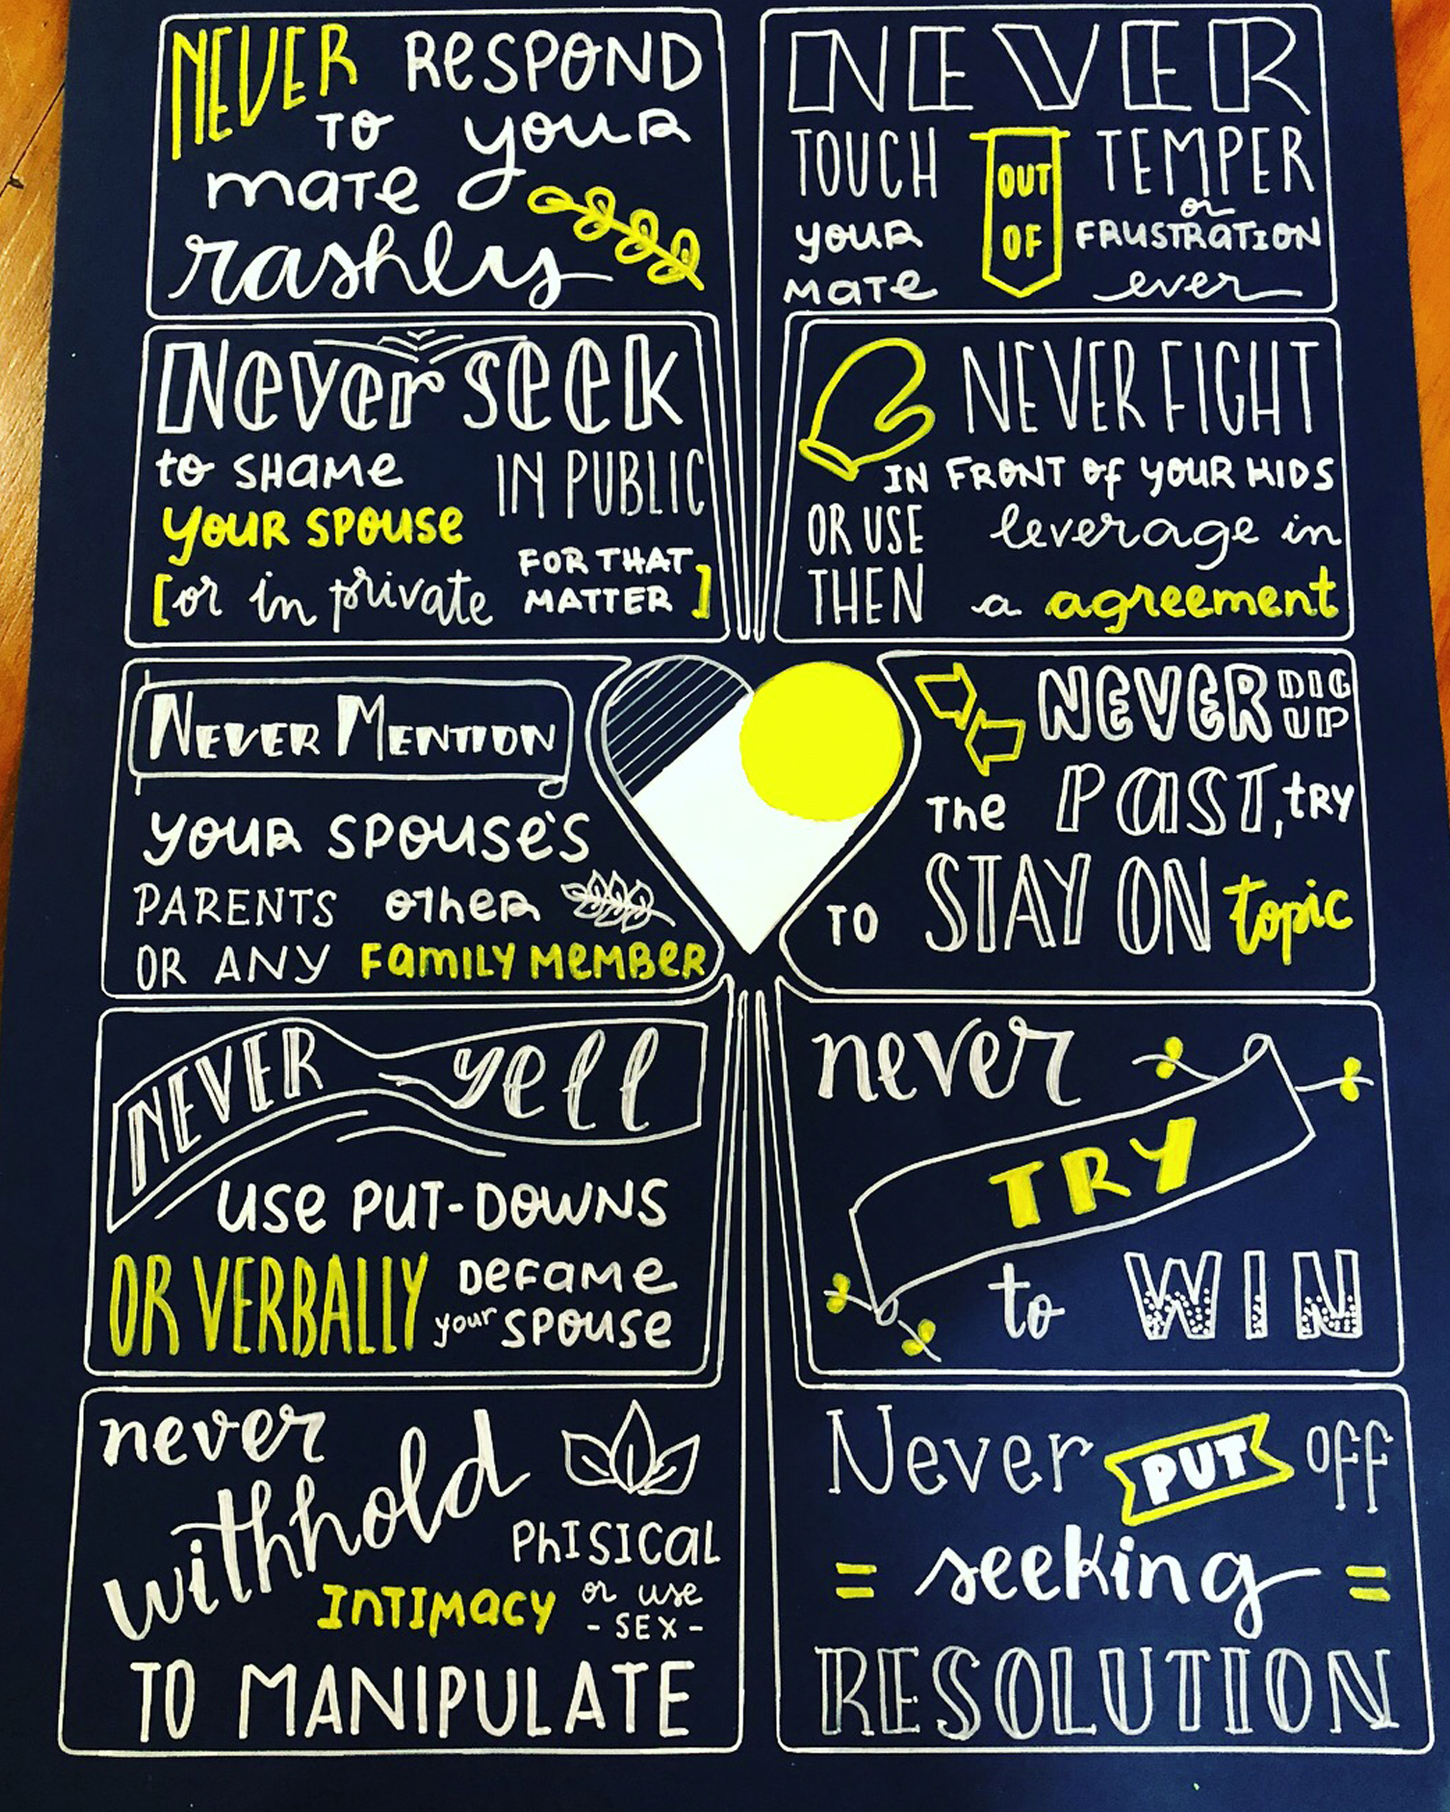 NEVER RESPOND
TO YOUR
MATE
rashly
NEVER
TOUCH OUT TEMPER
YOUR OF or FRUSTRATION
MATE ever
Never seek
to SHAME IN PUBLIC
YOUR SPOUSE
[or in private FOR THAT MATTER]
NEVER FIGHT
IN FRONT OF YOUR KIDS
OR USE leverage in
THEN a agreement
NEVER MENTION
YOUR SPOUSE'S
PARENTS OTHER
OR ANY FAMILY MEMBER
NEVER DIG UP
THE PAST, TRY
TO STAY ON topic
NEVER yell
USE PUT-DOWNS
OR VERBALLY DEFAME
your SPOUSE
never
TRY
to WIN
never
withhold
PHISICAL
INTIMACY or use
-SEX-
TO MANIPULATE
Never PUT OFF
= seeking =
RESOLUTION